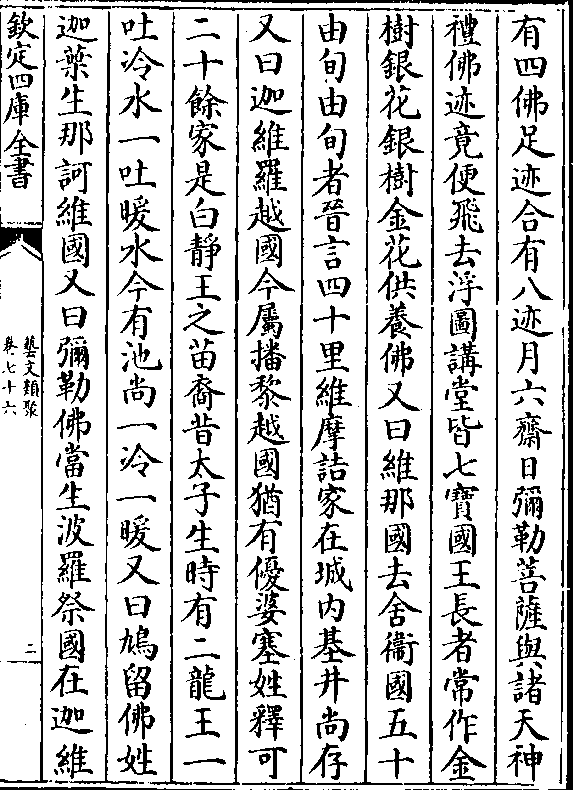 有四佛足迹合有八迹月六齋日彌勒菩薩與諸天神
禮佛迹竟便飛去浮圖講堂皆七寶國王長者常作金
樹銀花銀樹金花供養佛又曰維那國去舍衞國五十
由旬由旬者晉言四十里維摩詰家在城内基井尚存
又曰迦維羅越國今屬播黎越國猶有優婆塞姓釋可
二十餘家是白靜王之苗裔昔太子生時有二龍王一
吐冷水一吐暖水今有池尚一冷一暖又曰鳩留佛姓
迦葉生那訶維國又曰彌勒佛當生波羅祭國在迦維
欽定四庫全書
藝文類聚
卷七十六
二